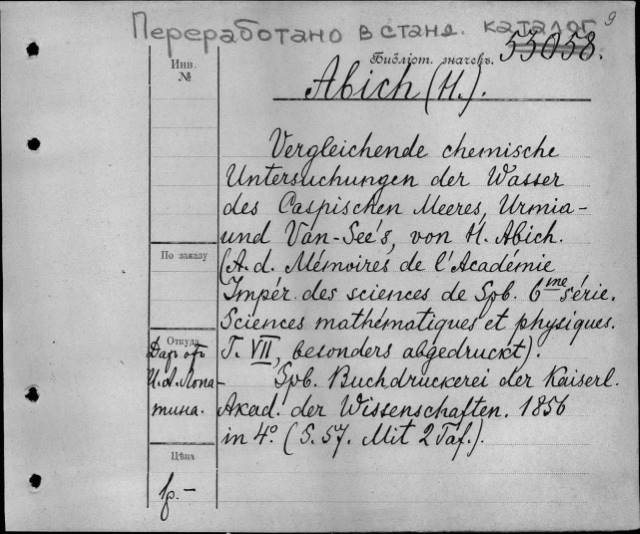 Переработано в станд. каталог
9
Инв.
№
Библіот. значекъ.
53058.
Abich (H.).
Vergleichende chemische
Untersuchungen der Wasser
des Caspischen Meeres, Urmia-
und Van-See's, von H. Abich.
(A. d. Mémoires de l'Académie
Impér. des sciences de Spb. 6me série.
Sciences mathématiques et physiques.
T. VII, besonders abgedruckt).
Spb. Buchdruckerei der Kaiserl.
Akad. der Wissenschaften. 1856
in 4º. (S. 57. Mit 2 Taf.).
По заказу
Откуда
Даръ отъ
И. А. Лопа-
тина.
Цѣна
1р.-